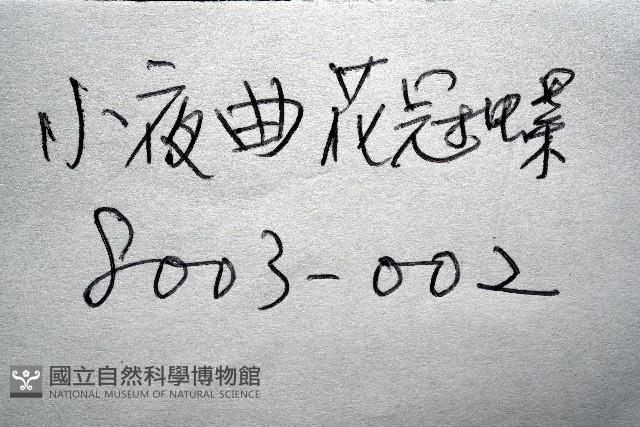 小夜曲花冠蝶
8003-002
國立自然科學博物館
NATIONAL MUSEUM OF NATURAL SCIENCE